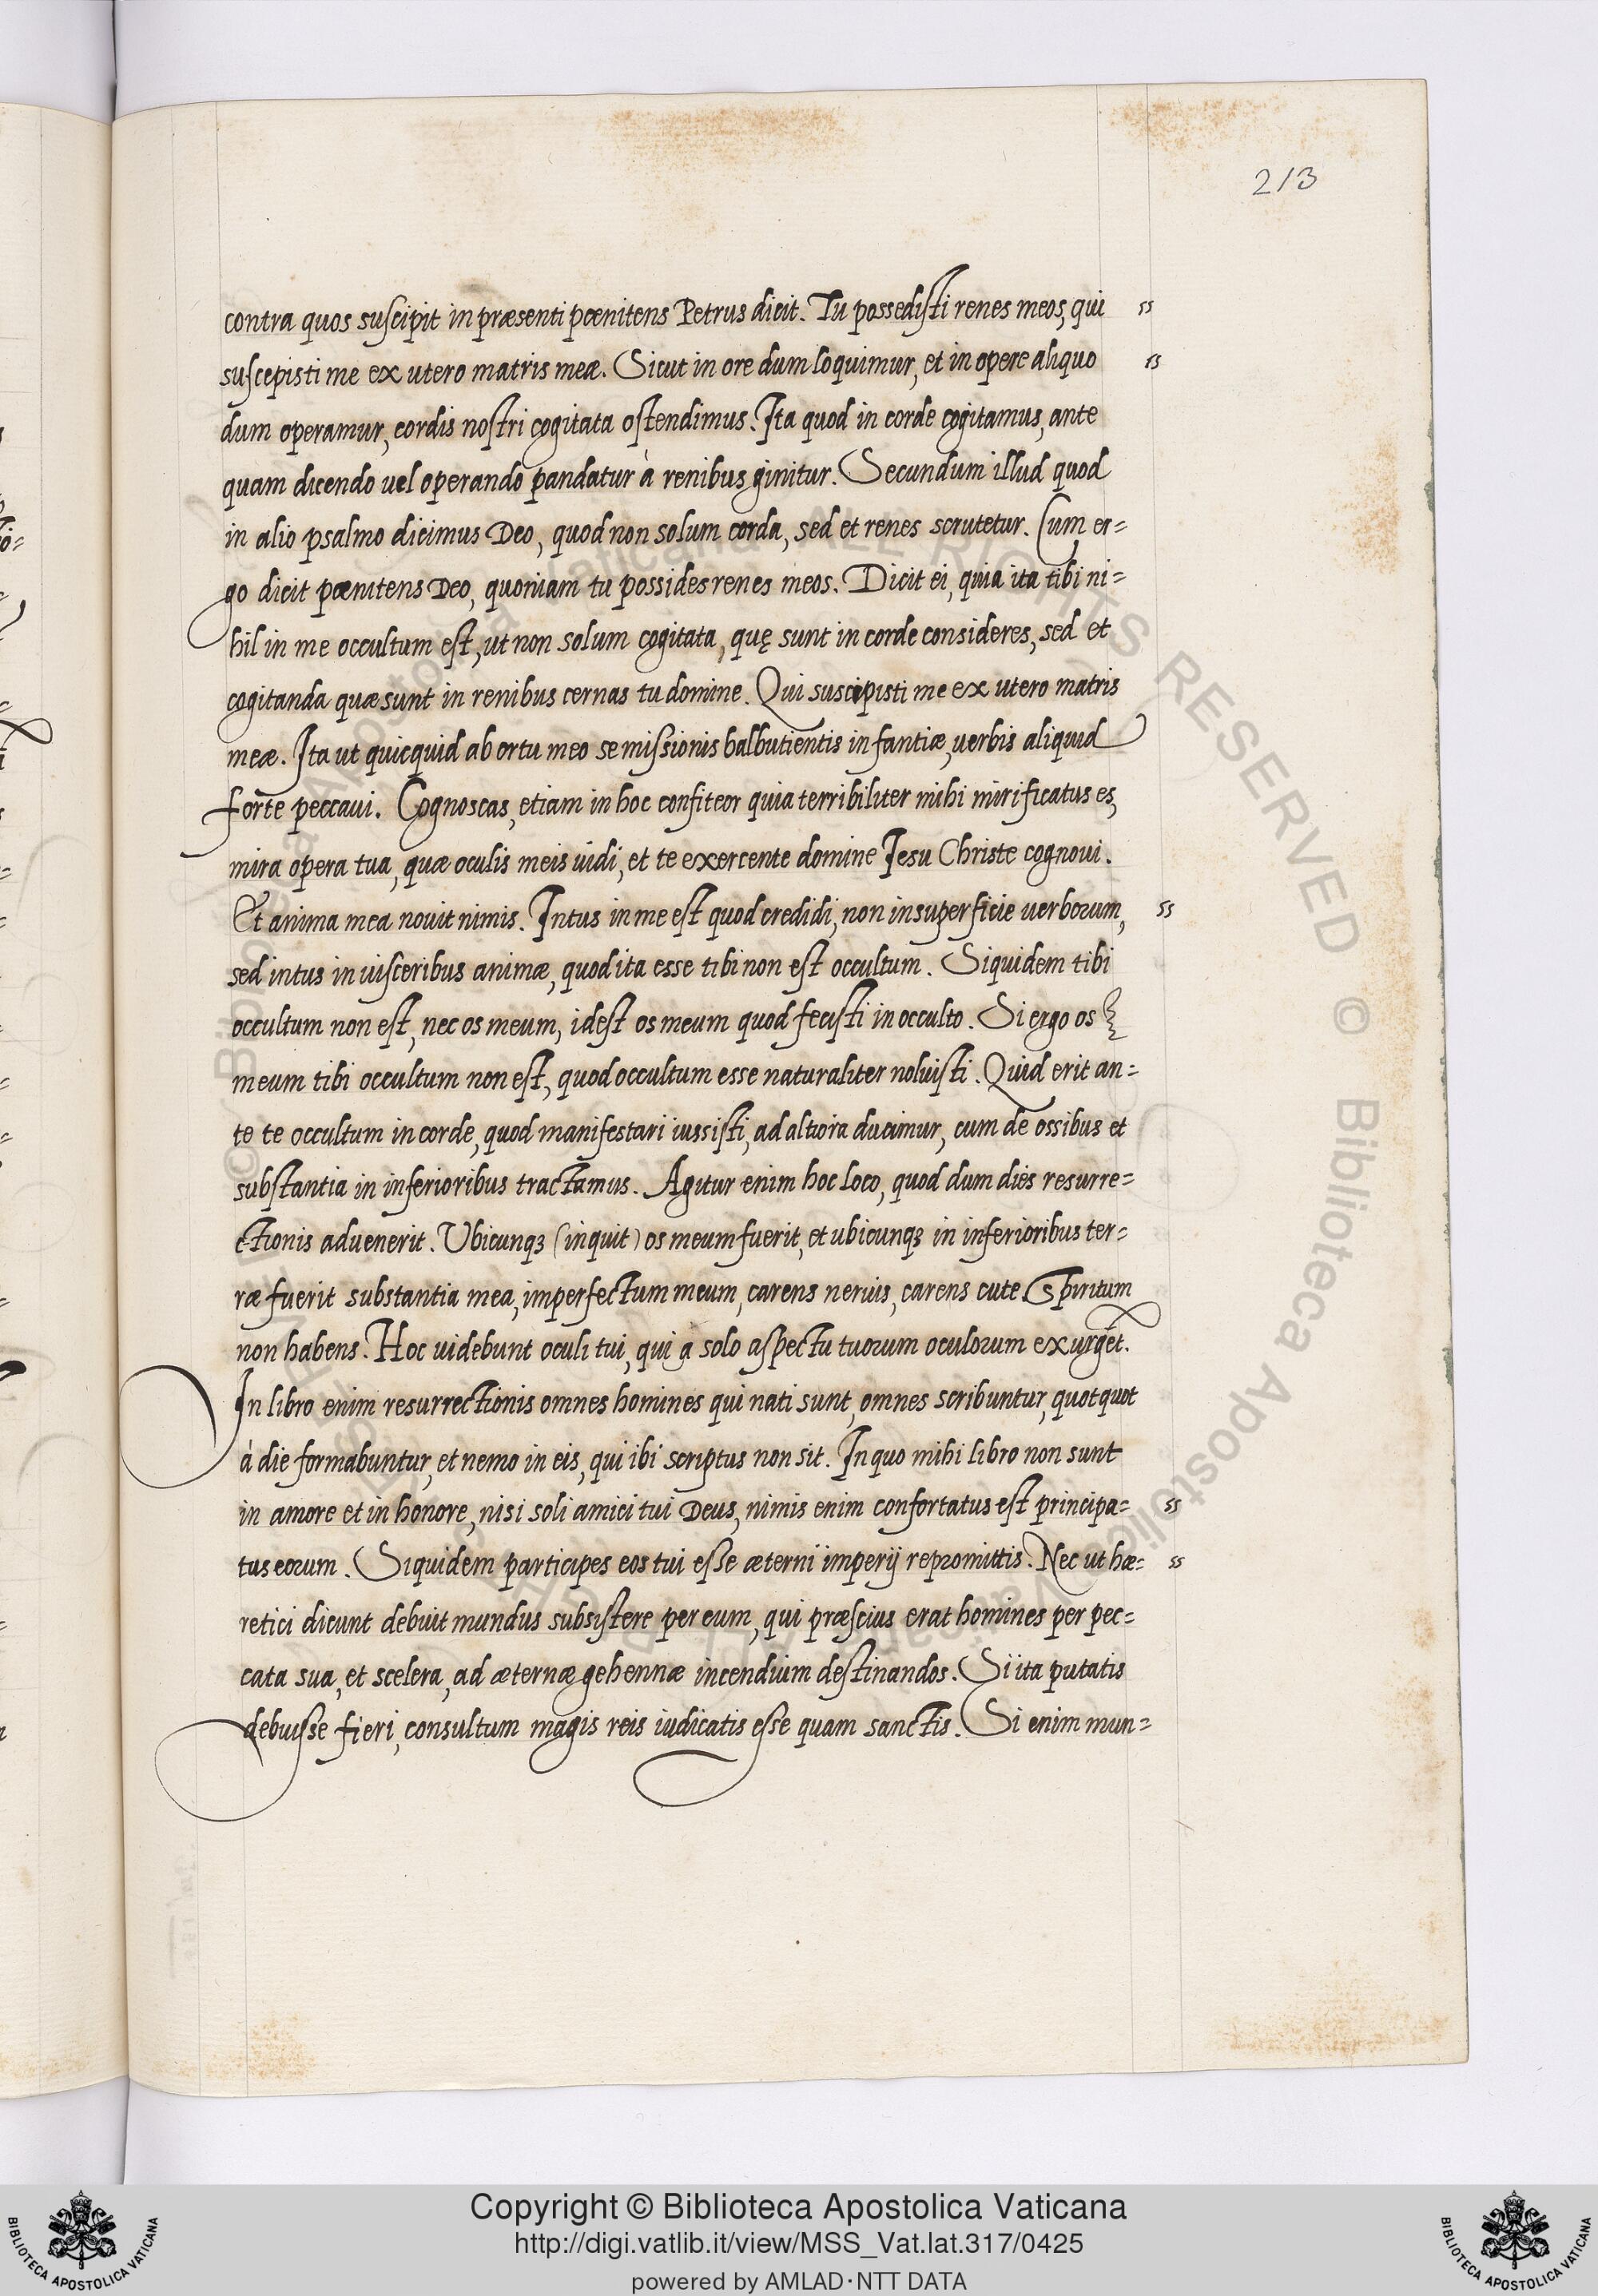 213
contra quos suscipit in præsenti pœnitens Petrus dicit. Tu possedisti renes meos, qui ss
suscepisti me ex utero matris meæ. Sicut in ore dum loquimur, et in opere aliquo ss
dum operamur, cordis nostri cogitata ostendimus. Ita quod in corde cogitamus, ante
quam dicendo uel operando pandatur à renibus ginitur. Secundum illud quod
in alio psalmo dicimus Deo, quod non solum corda, sed et renes scrutetur. Cum er=
go dicit pœnitens Deo, quoniam tu possides renes meos. Dicit ei, quia ita tibi ni=
hil in me occultum est, ut non solum cogitata, quę sunt in corde consideres, sed et
cogitanda quæ sunt in renibus cernas tu domine. Qui suscipisti me ex utero matris
meæ. Ita ut quicquid ab ortu meo semissionis balbutientis infantiæ, uerbis aliquid
forte peccaui. Cognoscas, etiam in hoc confiteor quia terribiliter mihi mirificatus es,
mira opera tua, quæ oculis meis uidi, et te exercente domine Jesu Christe cognoui.
Et anima mea nouit nimis. Intus in me est quod credidi, non in superficie uerborum, ss
sed intus in uisceribus animæ, quod ita esse tibi non est occultum. Siquidem tibi
occultum non est, nec os meum, idest os meum quod fecisti in occulto. Si ergo os
meum tibi occultum non est, quod occultum esse naturaliter noluisti. Quid erit an=
te te occultum in corde, quod manifestari iussisti, ad altiora ducimur, cum de ossibus et
substantia in inferioribus tractamus. Agitur enim hoc loco, quod dum dies resurre=
ctionis aduenerit. Ubicunqꝫ (inquit) os meum fuerit, et ubicunqꝫ in inferioribus ter=
ræ fuerit substantia mea, imperfectum meum, carens neruis, carens cute. Spiritum
non habens. Hoc uidebunt oculi tui, qui a solo aspectu tuorum oculorum exurget.
In libro enim resurrectionis omnes homines qui nati sunt, omnes scribuntur, quotquot
à die formabuntur, et nemo in eis, qui ibi scriptus non sit. In quo mihi libro non sunt
in amore et in honore, nisi soli amici tui Deus, nimis enim confortatus est principa= ss
tus eorum. Siquidem participes eos tui esse æterni imperij repromittis. Nec ut hæ= ss
retici dicunt debuit mundus subsistere per eum, qui præscius erat homines per pec=
cata sua, et scelera, ad æternæ gehennæ incendium destinandos. Si ita putatis
debuisse fieri, consultum magis reis iudicatis esse quam sanctis. Si enim mun=
© Biblioteca Apostolica Vaticana ALL RIGHTS RESERVED
Copyright © Biblioteca Apostolica Vaticana
http://digi.vatlib.it/view/MSS_Vat.lat.317/0425
powered by AMLAD·NTT DATA
BIBLIOTECA APOSTOLICA VATICANA
BIBLIOTECA APOSTOLICA VATICANA